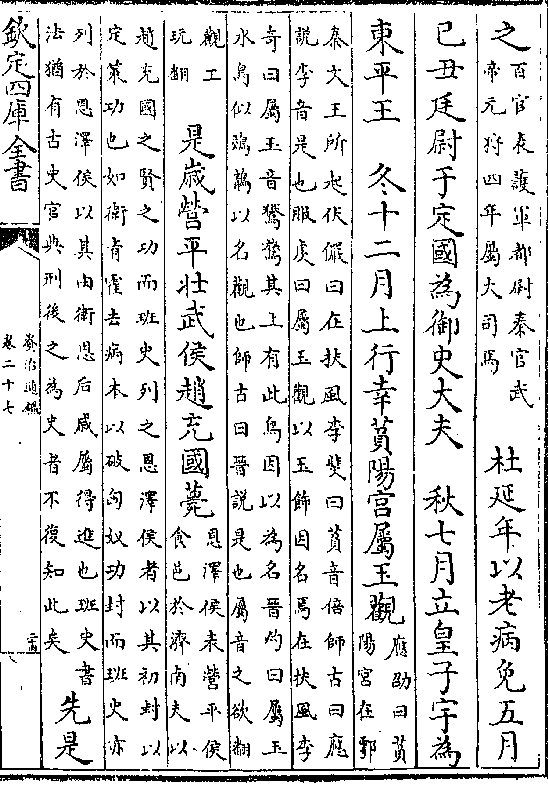 之百官表護軍都尉秦官武
帝元狩四年屬大司馬
杜延年以老病免五月
己丑廷尉于定國為御史大夫　秋七月立皇子宇為
東平王　冬十二月上行幸萯陽宮屬玉觀應劭曰萯
陽宮在鄠
秦文王所起伏儼曰在扶風李斐曰萯音倍師古曰應
說李音是也服虔曰屬玉觀以玉飾因名焉在扶風李
奇曰屬玉音鸑鷟其上有此鳥因以為名晉灼曰屬玉
水鳥似鵁鶄以名觀也師古曰晉說是也屬音之欲翻
觀工
玩翻
是歲營平壯武侯趙充國薨恩澤侯表營平侯
食邑於濟南夫以
趙充國之賢之功而班史列之恩澤侯者以其初封以
定策功也如衛青霍去病本以破匈奴功封而班史亦
列於恩澤侯以其由衛思后戚屬得進也班史書
法猶有古史官典刑後之為史者不復知此矣
先是
欽定四庫全書
資治通鑑
卷二十七